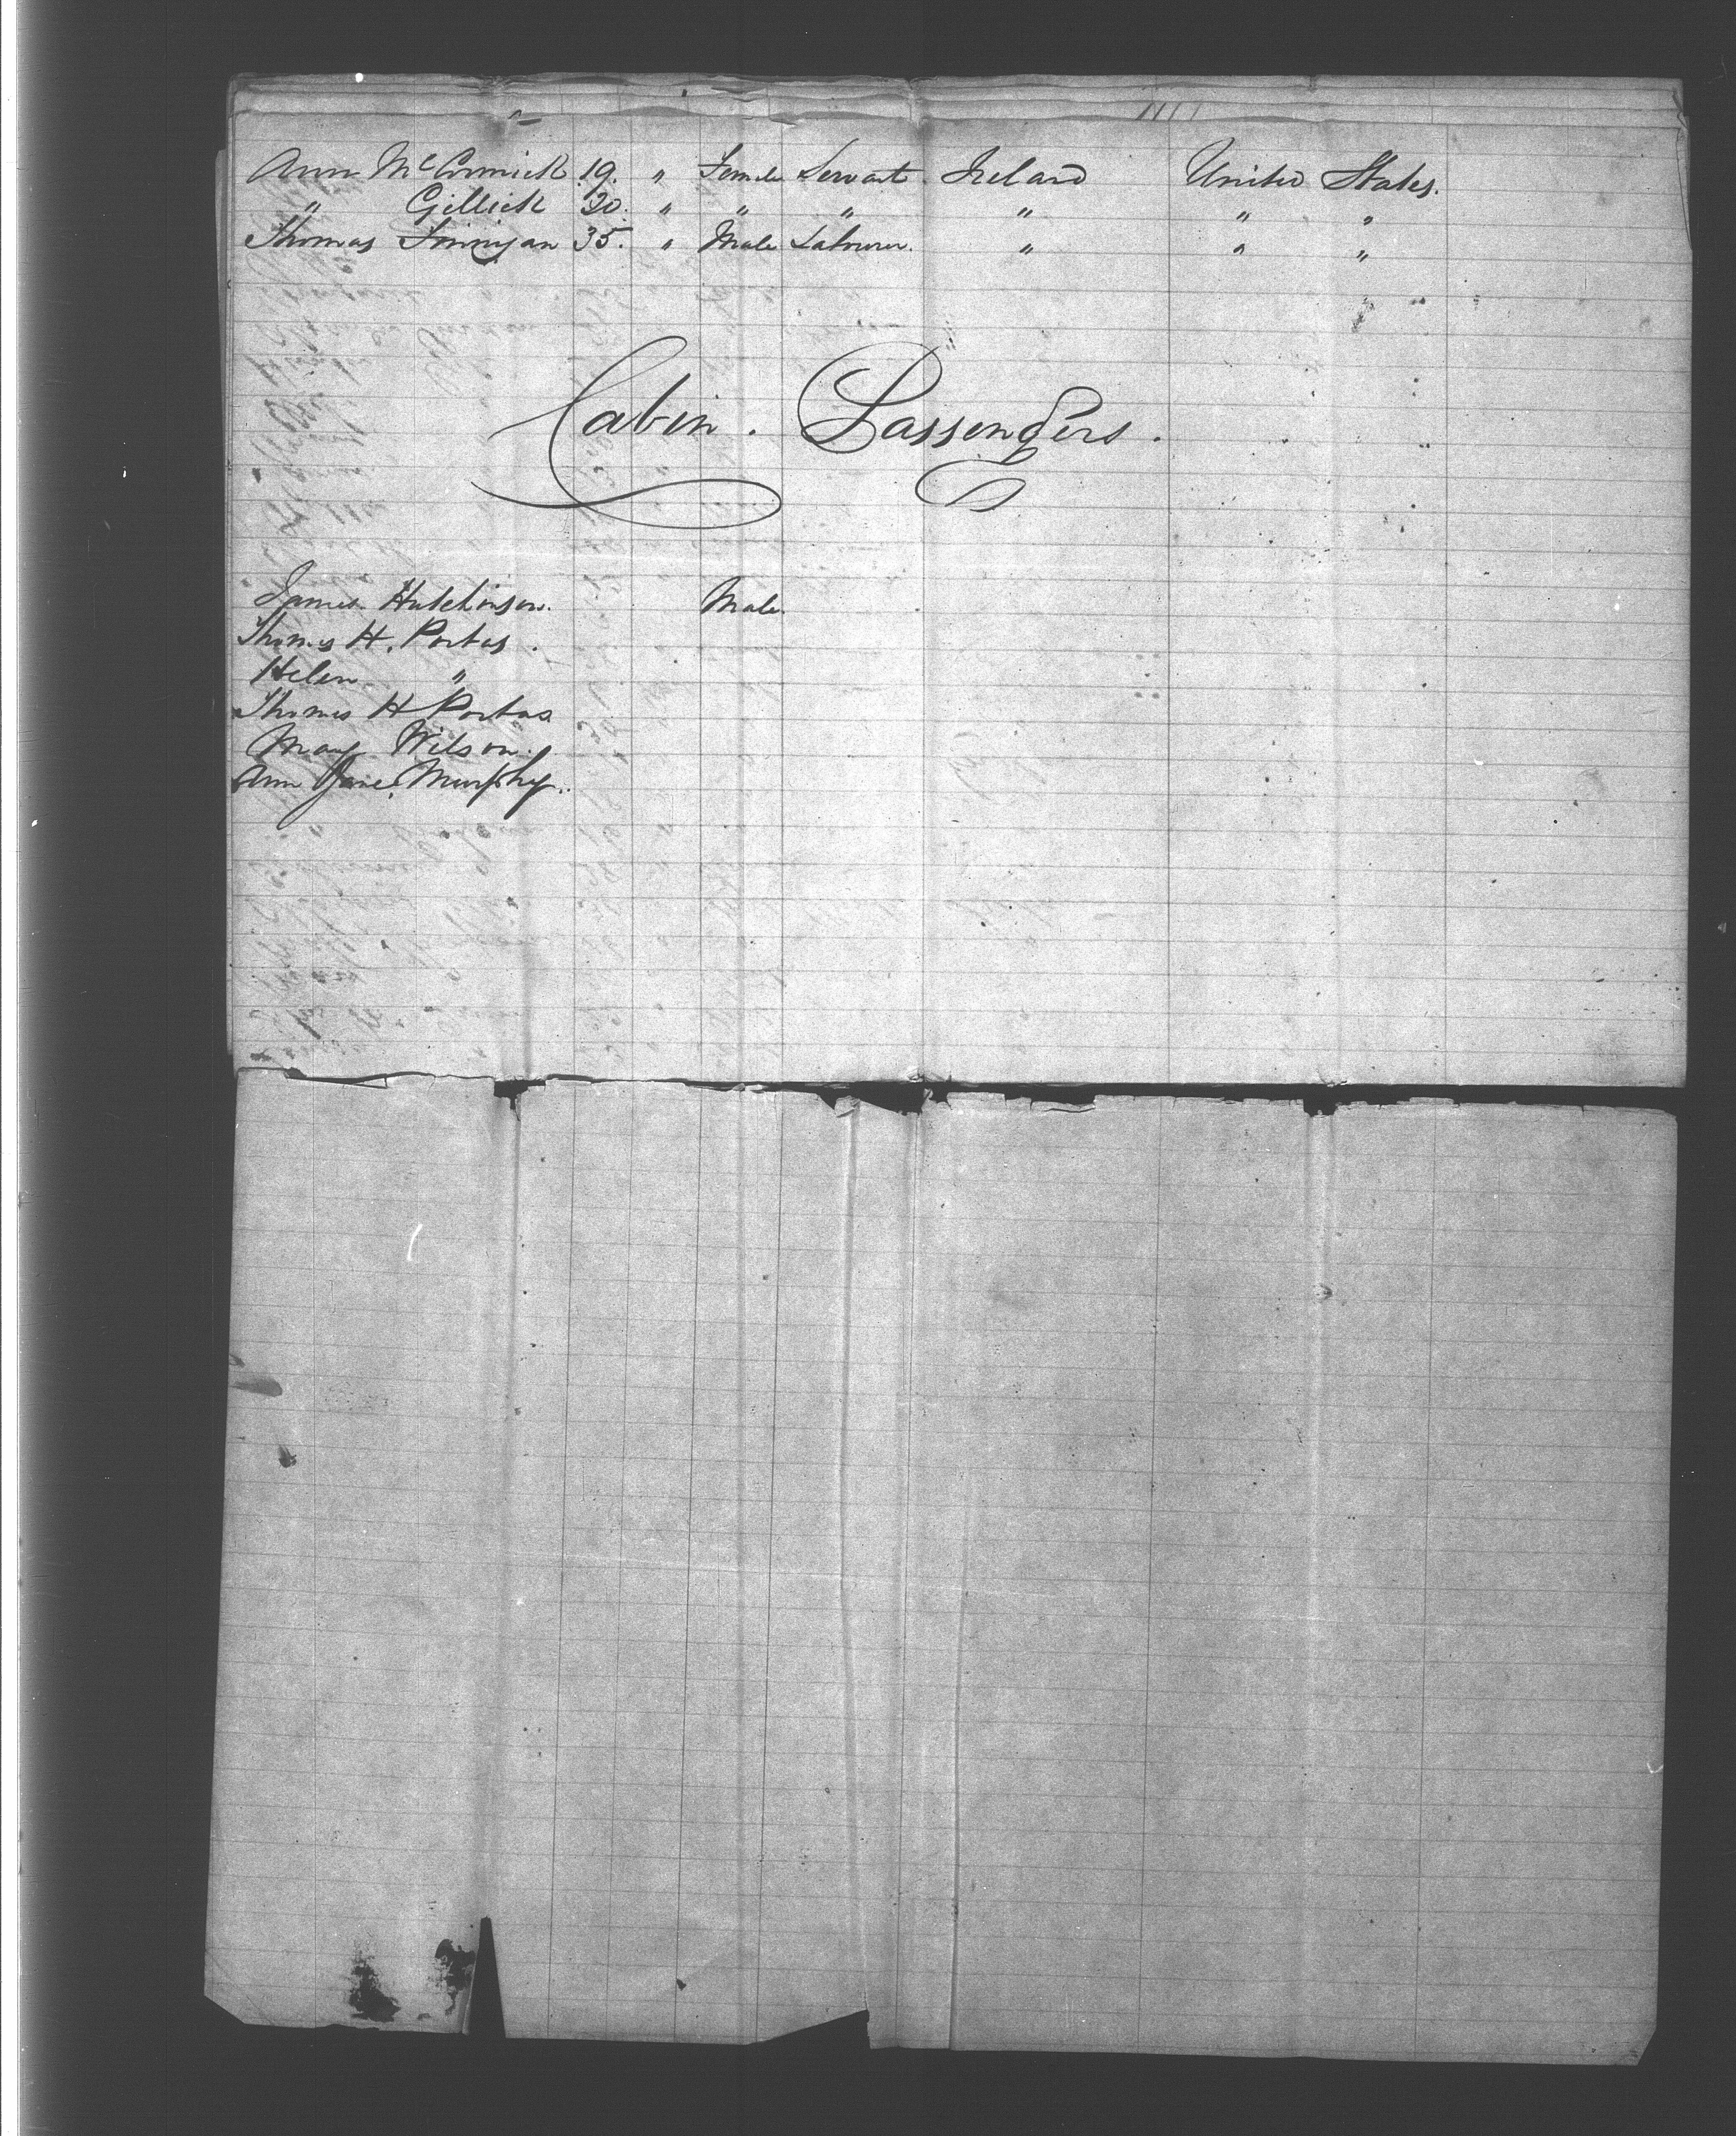 Ann McCormick 19. " Female Servant. Ireland United States.
" Gillick 20. " " " " " "
Thomas Finnigan 35. " Male Labourer. " " "
Cabin. Passengers.
James Hutchinson. Male.
Thomas H. Portas.
Helen "
Thomas H Portas
Mary Wilson.
Ann Jane Murphy.